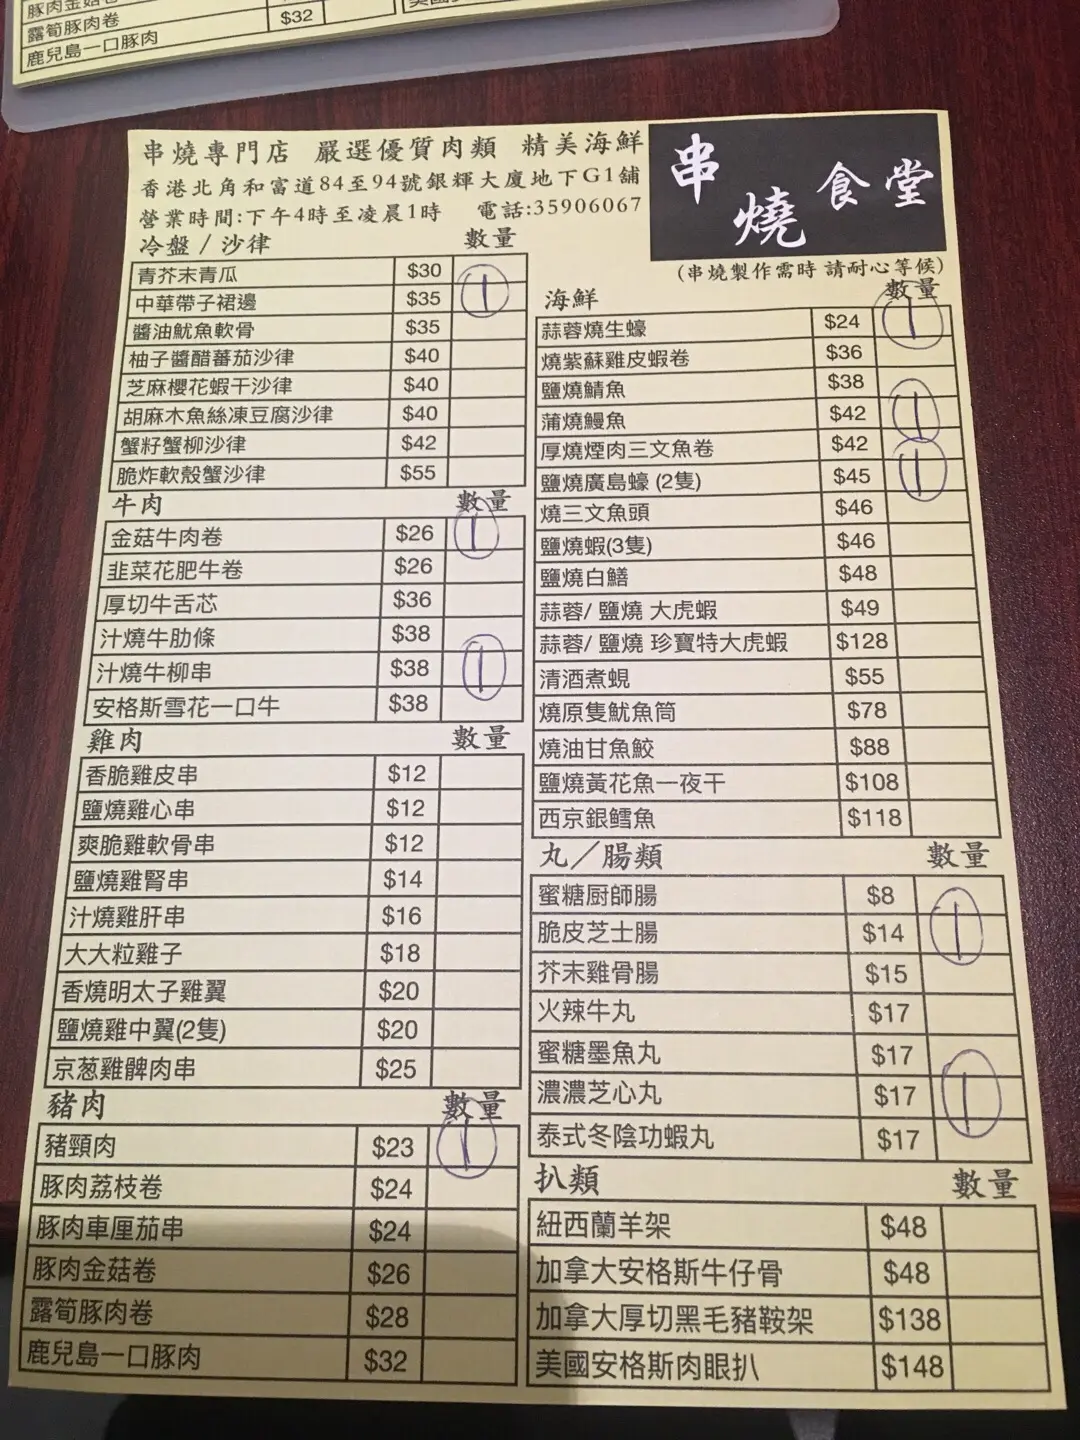 豚肉金菇卷
露筍豚肉卷 $32
鹿兒島一口豚肉
串燒專門店 嚴選優質肉類 精美海鮮
香港北角和富道84至94號銀輝大廈地下G1舖
營業時間:下午4時至凌晨1時 電話:35906067
串燒食堂
(串燒製作需時 請耐心等候)
冷盤/沙律 數量
青芥末青瓜 $30
中華帶子裙邊 $35 1
醬油魷魚軟骨 $35
柚子醬醋蕃茄沙律 $40
芝麻櫻花蝦干沙律 $40
胡麻木魚絲凍豆腐沙律 $40
蟹籽蟹柳沙律 $42
脆炸軟殼蟹沙律 $55
牛肉 數量
金菇牛肉卷 $26 1
韭菜花肥牛卷 $26
厚切牛舌芯 $36
汁燒牛肋條 $38
汁燒牛柳串 $38 1
安格斯雪花一口牛 $38
雞肉 數量
香脆雞皮串 $12
鹽燒雞心串 $12
爽脆雞軟骨串 $12
鹽燒雞腎串 $14
汁燒雞肝串 $16
大大粒雞子 $18
香燒明太子雞翼 $20
鹽燒雞中翼(2隻) $20
京葱雞髀肉串 $25
豬肉 數量
豬頸肉 $23 1
豚肉荔枝卷 $24
豚肉車厘茄串 $24
豚肉金菇卷 $26
露筍豚肉卷 $28
鹿兒島一口豚肉 $32
海鮮 數量
蒜蓉燒生蠔 $24 1
燒紫蘇雞皮蝦卷 $36
鹽燒鯖魚 $38
蒲燒鰻魚 $42 1
厚燒煙肉三文魚卷 $42
鹽燒廣島蠔 (2隻) $45 1
燒三文魚頭 $46
鹽燒蝦(3隻) $46
鹽燒白鱔 $48
蒜蓉/ 鹽燒 大虎蝦 $49
蒜蓉/ 鹽燒 珍寶特大虎蝦 $128
清酒煮蜆 $55
燒原隻魷魚筒 $78
燒油甘魚鮫 $88
鹽燒黃花魚一夜干 $108
西京銀鱈魚 $118
丸/腸類 數量
蜜糖厨師腸 $8
脆皮芝士腸 $14 1
芥末雞骨腸 $15
火辣牛丸 $17
蜜糖墨魚丸 $17
濃濃芝心丸 $17 1
泰式冬陰功蝦丸 $17
扒類 數量
紐西蘭羊架 $48
加拿大安格斯牛仔骨 $48
加拿大厚切黑毛豬鞍架 $138
美國安格斯肉眼扒 $148